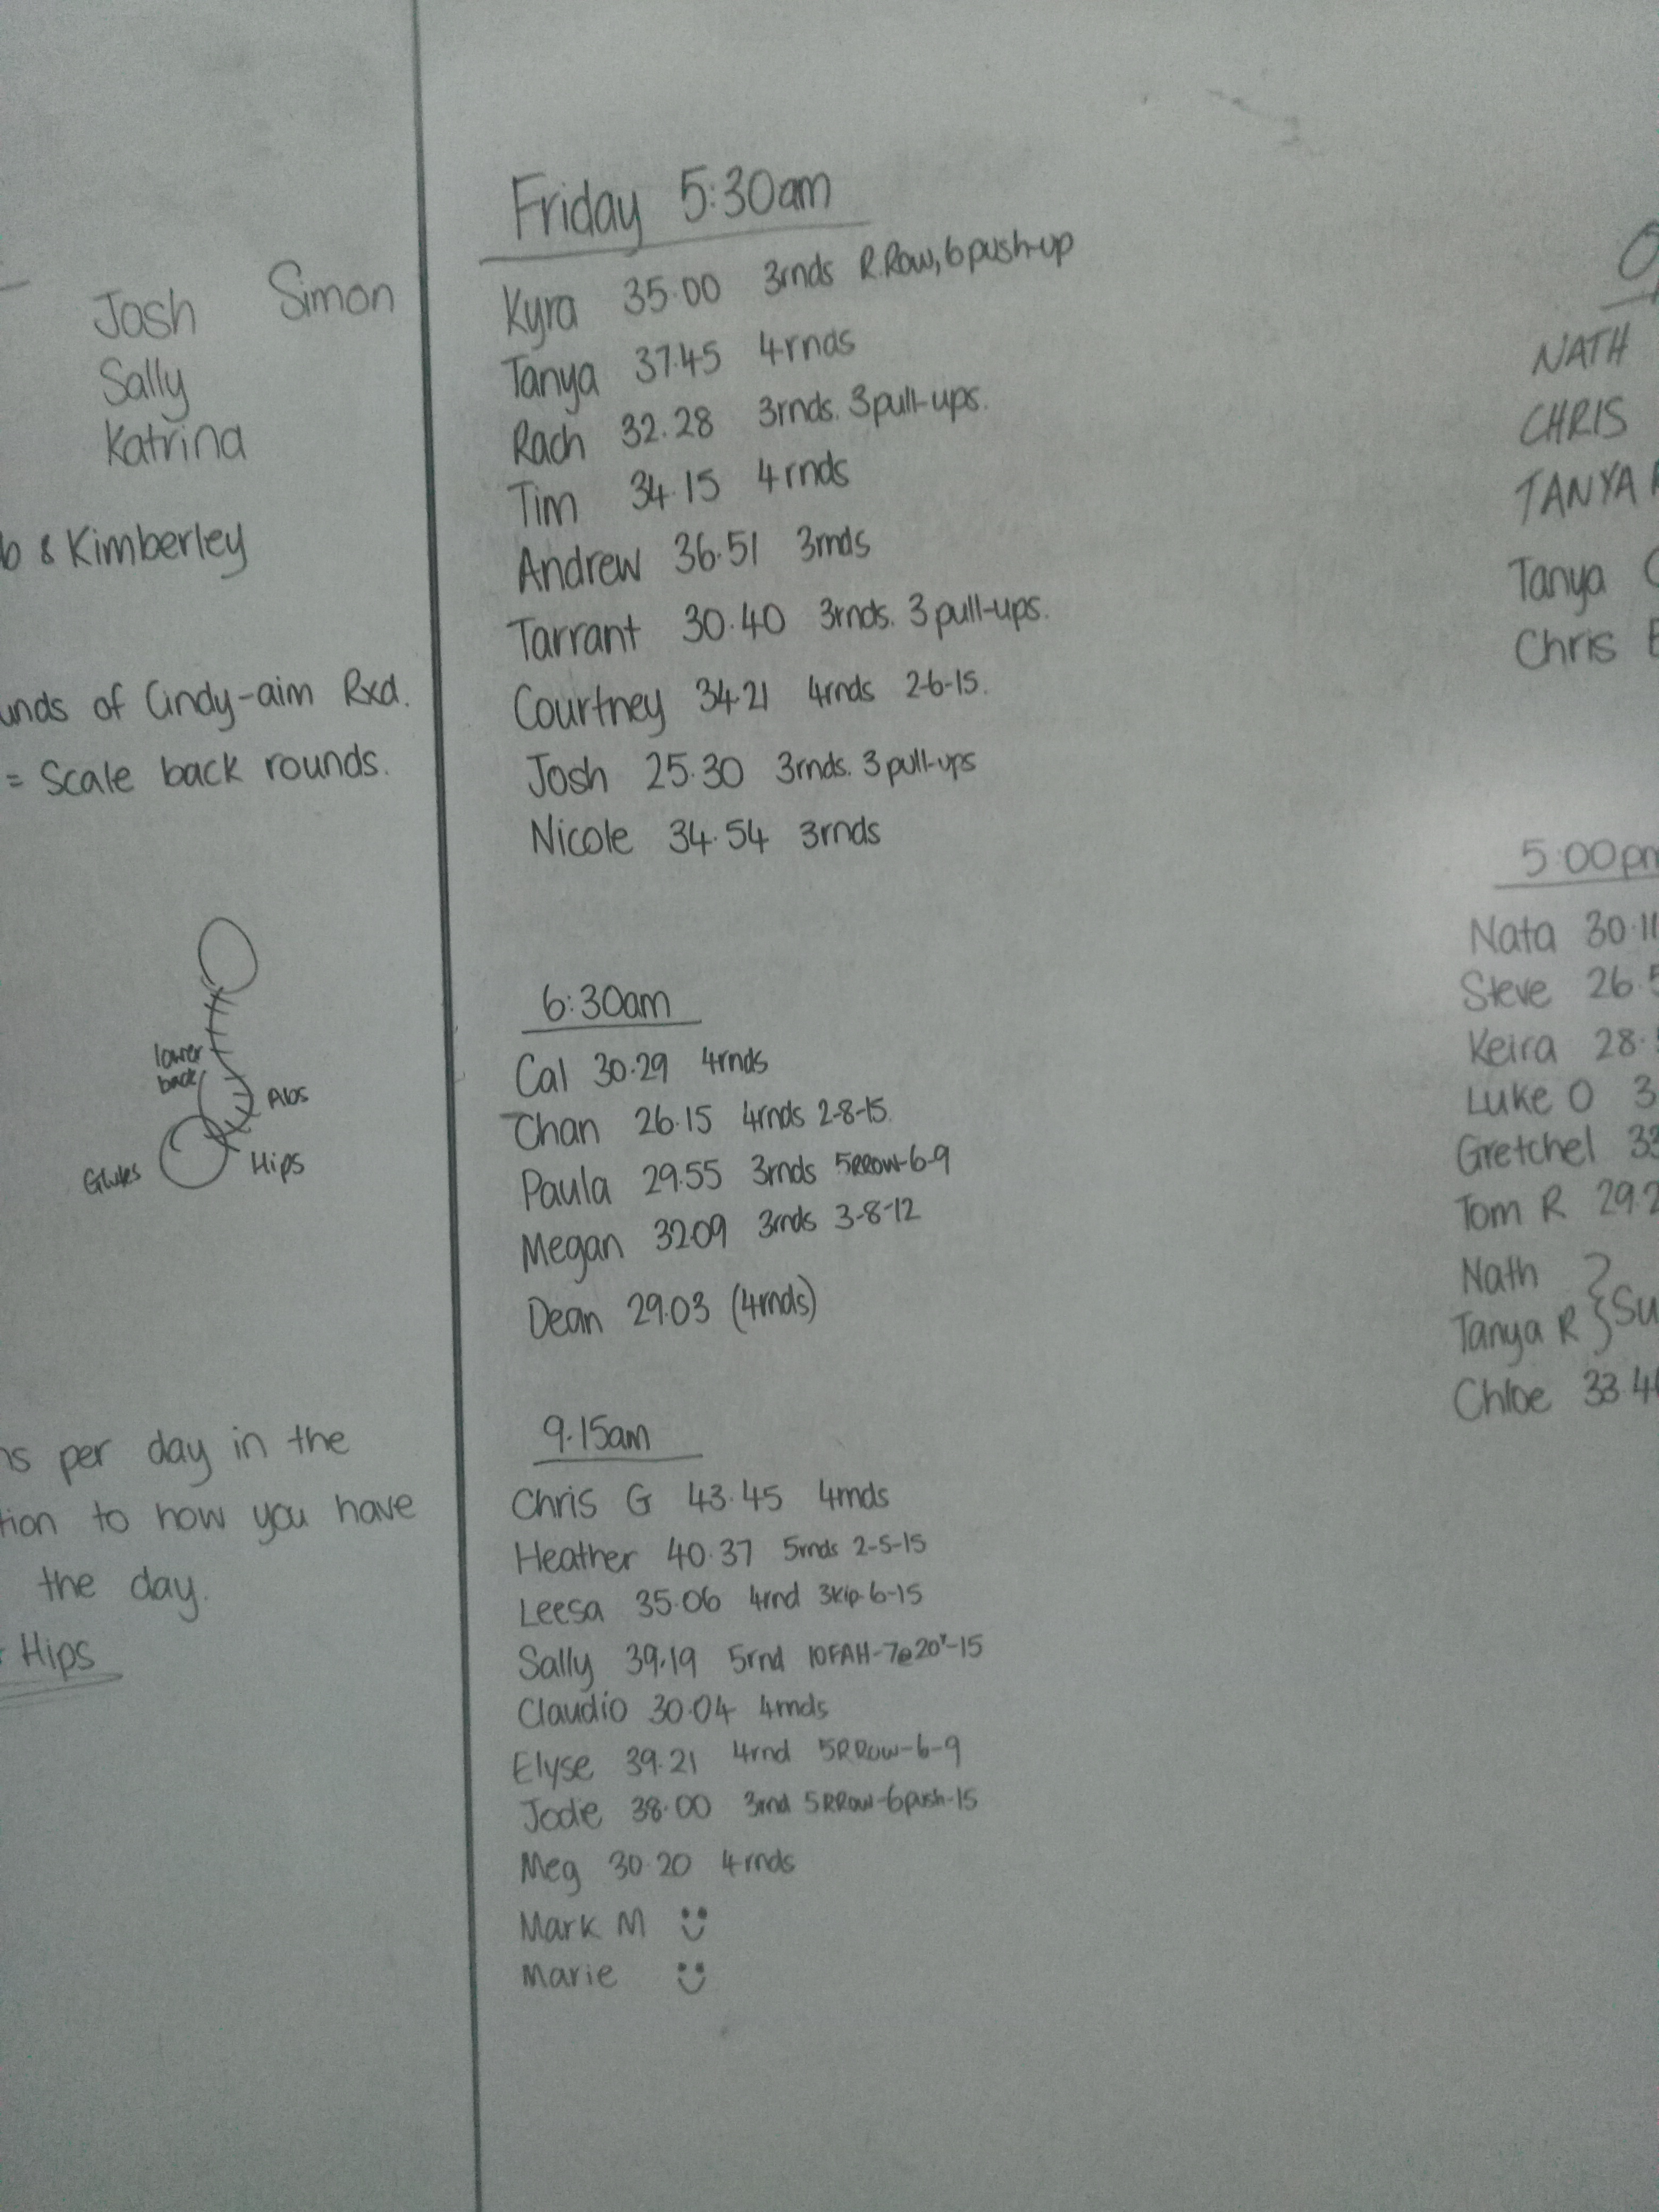 Josh Simon
Sally
Katrina
& Kimberley
of Cindy-aim Rxd.
= Scale back rounds.
lower
back
Abs
Glutes
Hips
per day in the
to how you have
the day.
Hips
Friday 5:30am
Kyra 35.00 3rnds R.Row, 6 push-up
Tanya 37.45 4rnds
Rach 32.28 3rnds. 3 pull-ups.
Tim 34.15 4rnds
Andrew 36.51 3rnds
Tarrant 30.40 3rnds. 3 pull-ups.
Courtney 34.21 4rnds 2-6-15.
Josh 25.30 3rnds. 3 pull-ups
Nicole 34.54 3rnds
6:30am
Cal 30.29 4rnds
Chan 26.15 4rnds 2-8-15.
Paula 29.55 3rnds 5RROW-6-9
Megan 32.09 3rnds 3-8-12
Dean 29.03 (4rnds)
9.15am
Chris G 43.45 4rnds
Heather 40.37 5rnds 2-5-15
Leesa 35.06 4rnd 3kip-6-15
Sally 39.19 5rnd 10FAH-7@20"-15
Claudio 30.04 4rnds
Elyse 39.21 4rnd 5RRow-6-9
Jodie 38.00 3rnd 5RRow-6push-15
Meg 30.20 4rnds
Mark M
Marie
NATH
CHRIS
TANYA
Tanya
Chris
5:00pm
Nata 30.11
Steve 26.5
Keira 28.
Luke O 3
Gretchel 33
Tom R 29.2
Nath
Tanya R
Chloe 33.4